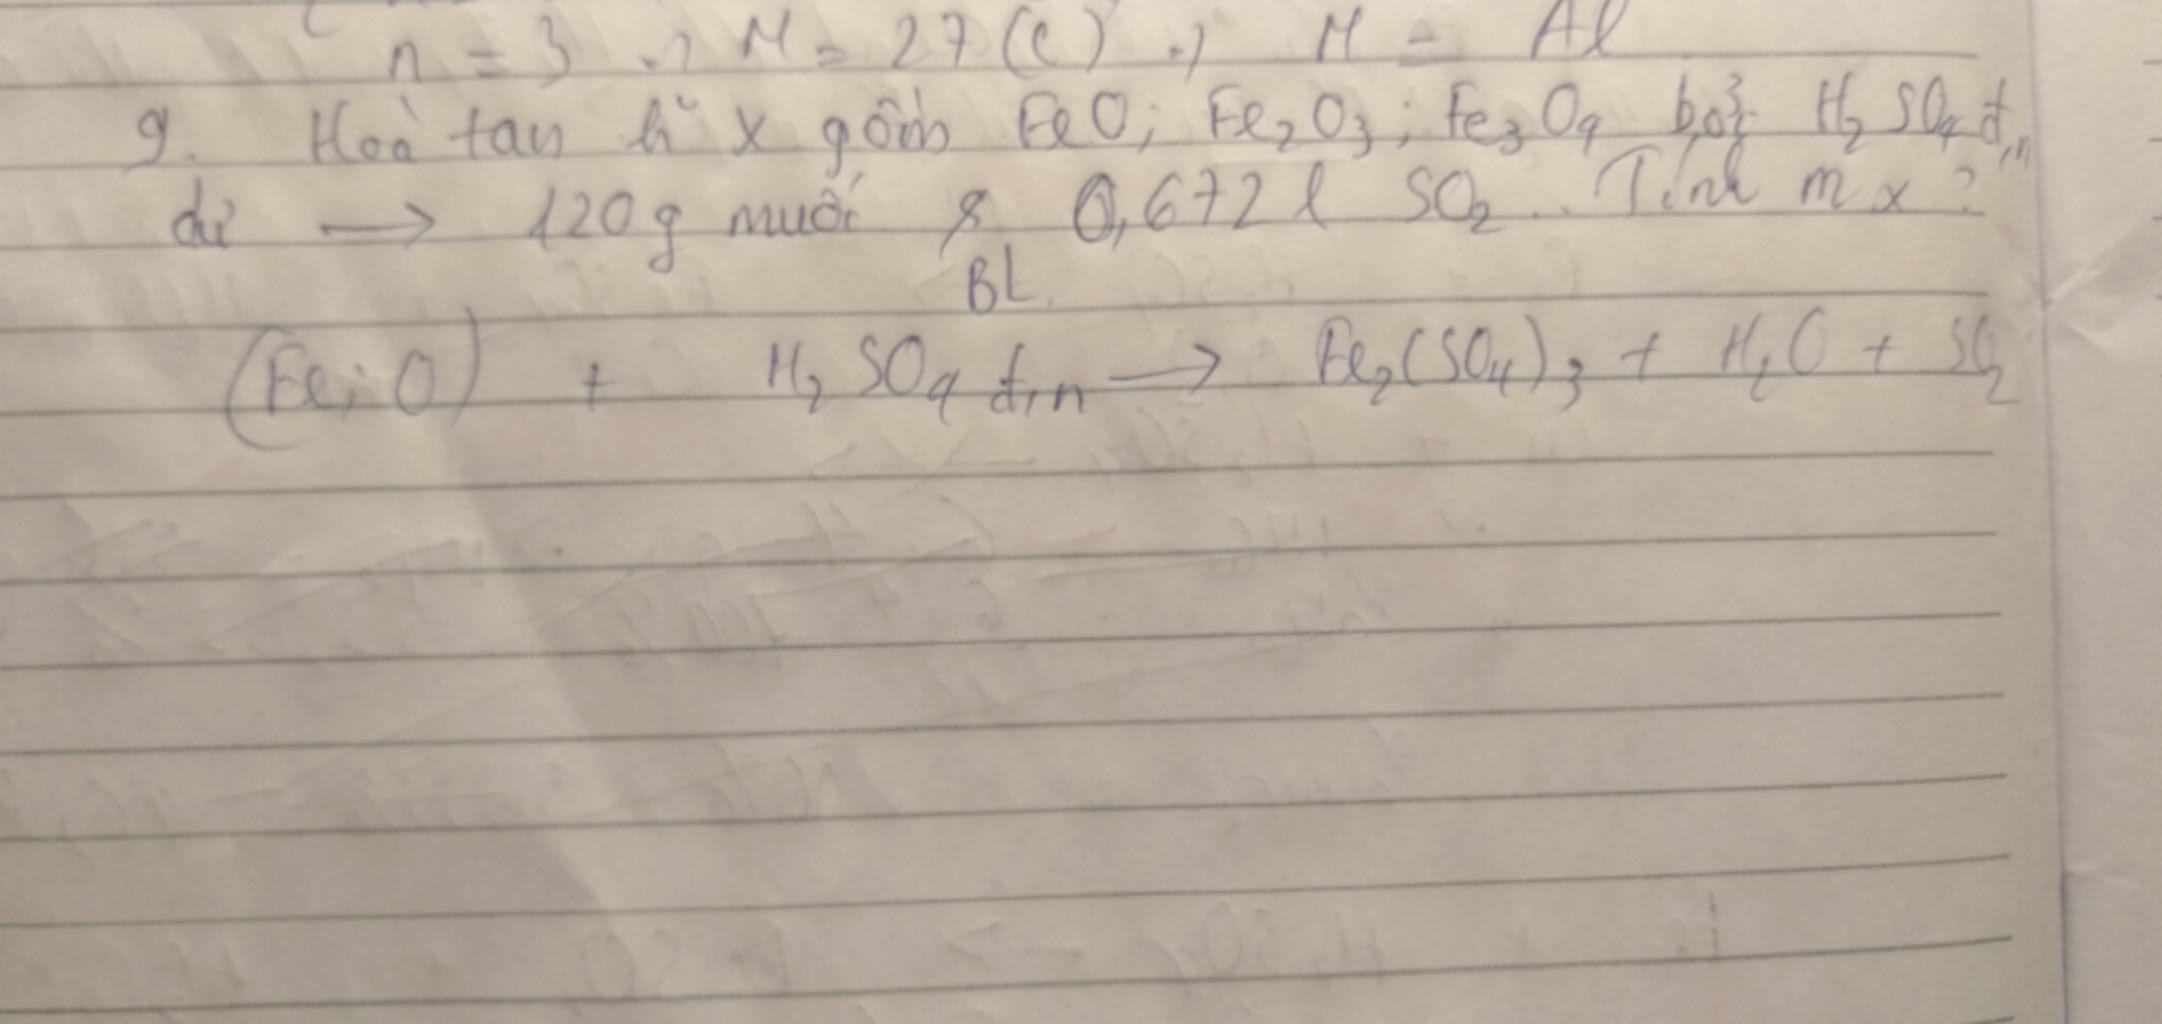 n = 3 → M = 27 (C) → M = Al
9. Hoà tan h² X gồm FeO; Fe₂O₃; Fe₃O₄ bởi H₂SO₄ đ,n
dư → 120g muối & 0,672 l SO₂. Tính m x?
BL.
(Fe; O) + H₂SO₄ đ,n → Fe₂(SO₄)₃ + H₂O + SO₂